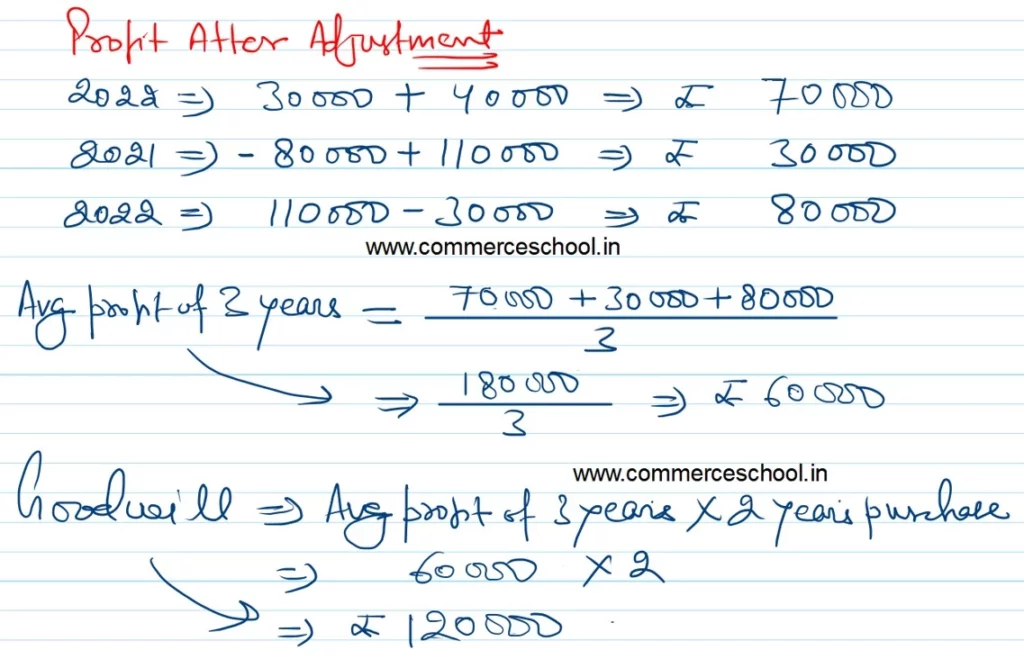 Profit After Adjustment
2022 ⇒ 30000 + 40000 ⇒ ₹ 70000
2021 ⇒ - 80000 + 110000 ⇒ ₹ 30000
2022 ⇒ 110000 - 30000 ⇒ ₹ 80000
www.commerceschool.in
Avg profit of 3 years = 70000 + 30000 + 80000
3
⇒ 180000 ⇒ ₹ 60000
3
www.commerceschool.in
Goodwill ⇒ Avg profit of 3 years × 2 years purchase
⇒ 60000 × 2
⇒ ₹ 120000